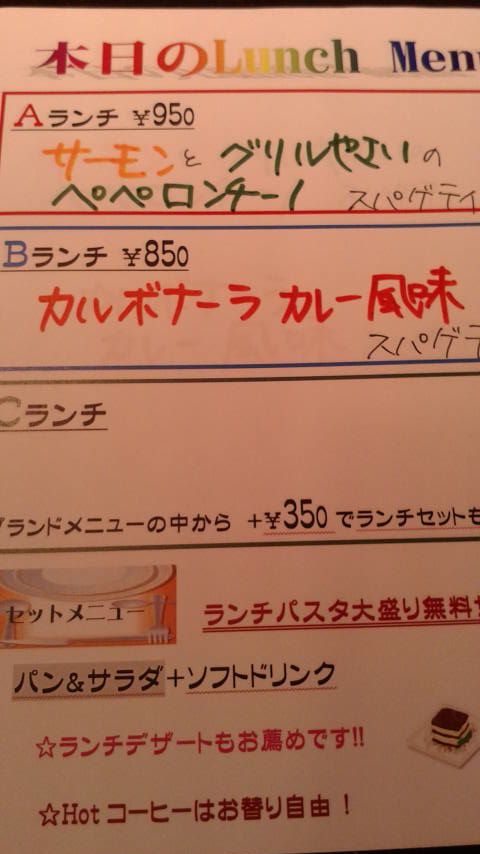 本日のLunch Menu
Aランチ ¥950
サーモンと グリルやさいの
ペペロンチーノ スパゲティ
Bランチ ¥850
カルボナーラ カレー風味
スパゲテ
Cランチ
グランドメニューの中から +¥350 でランチセットも
セットメニュー
ランチパスタ大盛り無料
パン&サラダ+ソフトドリンク
☆ランチデザートもお薦めです!!
☆Hot コーヒーはお替り自由！